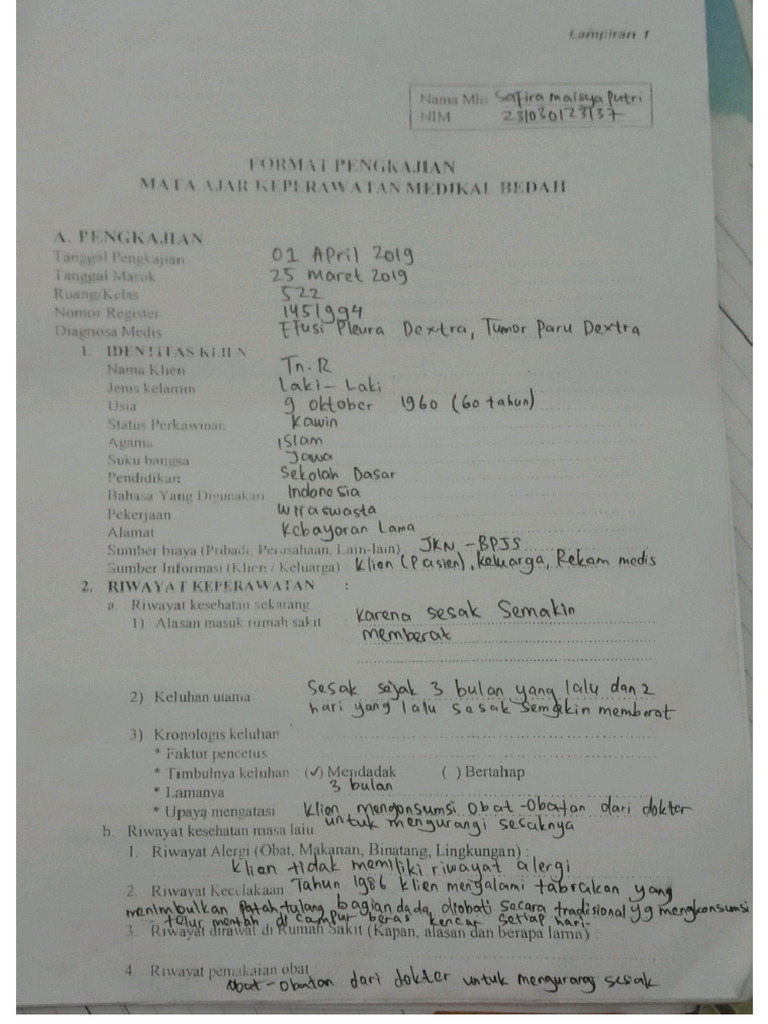 Lampiran 1
Nama Mhs Safira maisya Putri
NIM 231030123137
FORMAT PENGKAJIAN
MATA AJAR KEPERAWATAN MEDIKAL BEDAH
A. PENGKAJIAN
Tanggal Pengkajian 01 April 2019
Tanggal Masuk 25 maret 2019
Ruang/Kelas 522
Nomor Register 1451994
Diagnosa Medis Efusi Pleura Dextra, Tumor Paru Dextra
1. IDENTITAS KLIEN
Nama Klien Tn. R
Jenis kelamin Laki-Laki
Usia 9 oktober 1960 (60 tahun)
Status Perkawinan Kawin
Agama islam
Suku bangsa Jawa
Pendidikan Sekolah Dasar
Bahasa Yang Digunakan Indonesia
Pekerjaan Wiraswasta
Alamat Kebayoran Lama
Sumber biaya (Pribadi, Perusahaan, Lain-lain) JKN - BPJS
Sumber Informasi (Klien / Keluarga) Klien (Pasien), Keluarga, Rekam medis
2. RIWAYAT KEPERAWATAN :
a. Riwayat kesehatan sekarang
1) Alasan masuk rumah sakit Karena sesak Semakin
memberat
2) Keluhan utama Sesak sejak 3 bulan yang lalu dan 2
hari yang lalu sesak semakin memberat
3) Kronologis keluhan
* Faktor pencetus
* Timbulnya keluhan (✓) Mendadak ( ) Bertahap
* Lamanya 3 bulan
* Upaya mengatasi Klien mengonsumsi obat-obatan dari dokter
untuk mengurangi sesaknya
b. Riwayat kesehatan masa lalu
1. Riwayat Alergi (Obat, Makanan, Binatang, Lingkungan) :
Klien tidak memiliki riwayat alergi
2 Riwayat Kecelakaan Tahun 1986 klien mengalami tabrakan yang
menimbulkan patah tulang bagian dada, diobati secara tradisional yg mengkonsumsi
telur mentah di campur beras kencur setiap hari.
3. Riwayat dirawat di Rumah Sakit (Kapan, alasan dan berapa lama) :
4. Riwayat pemakaian obat
obat-obatan dari dokter untuk mengurangi sesak